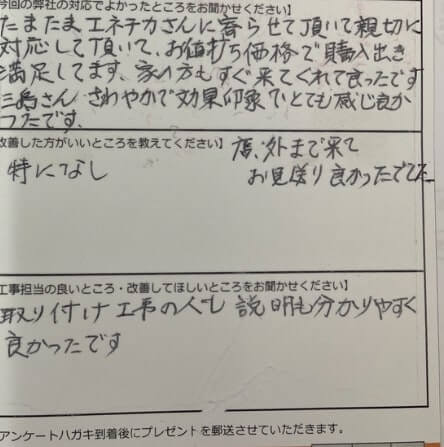 今回の弊社の対応でよかったところをお聞かせください】
たまたまエネチカさんに寄らせて頂いて親切に
対応して頂いて、お値打ち価格で購入出き
満足してます、家の方もすぐ来てくれて良かったです
三島さん さわやかで効果印象でとても感じ良か
ったです、
改善した方がいいところを教えてください】
店、外まで来て
特になし
お見送り良かったでした
工事担当の良いところ・改善してほしいところをお聞かせください】
取り付け工事の人も 説明も分かりやすく
良かったです
アンケートハガキ到着後にプレゼントを郵送させていただきます。